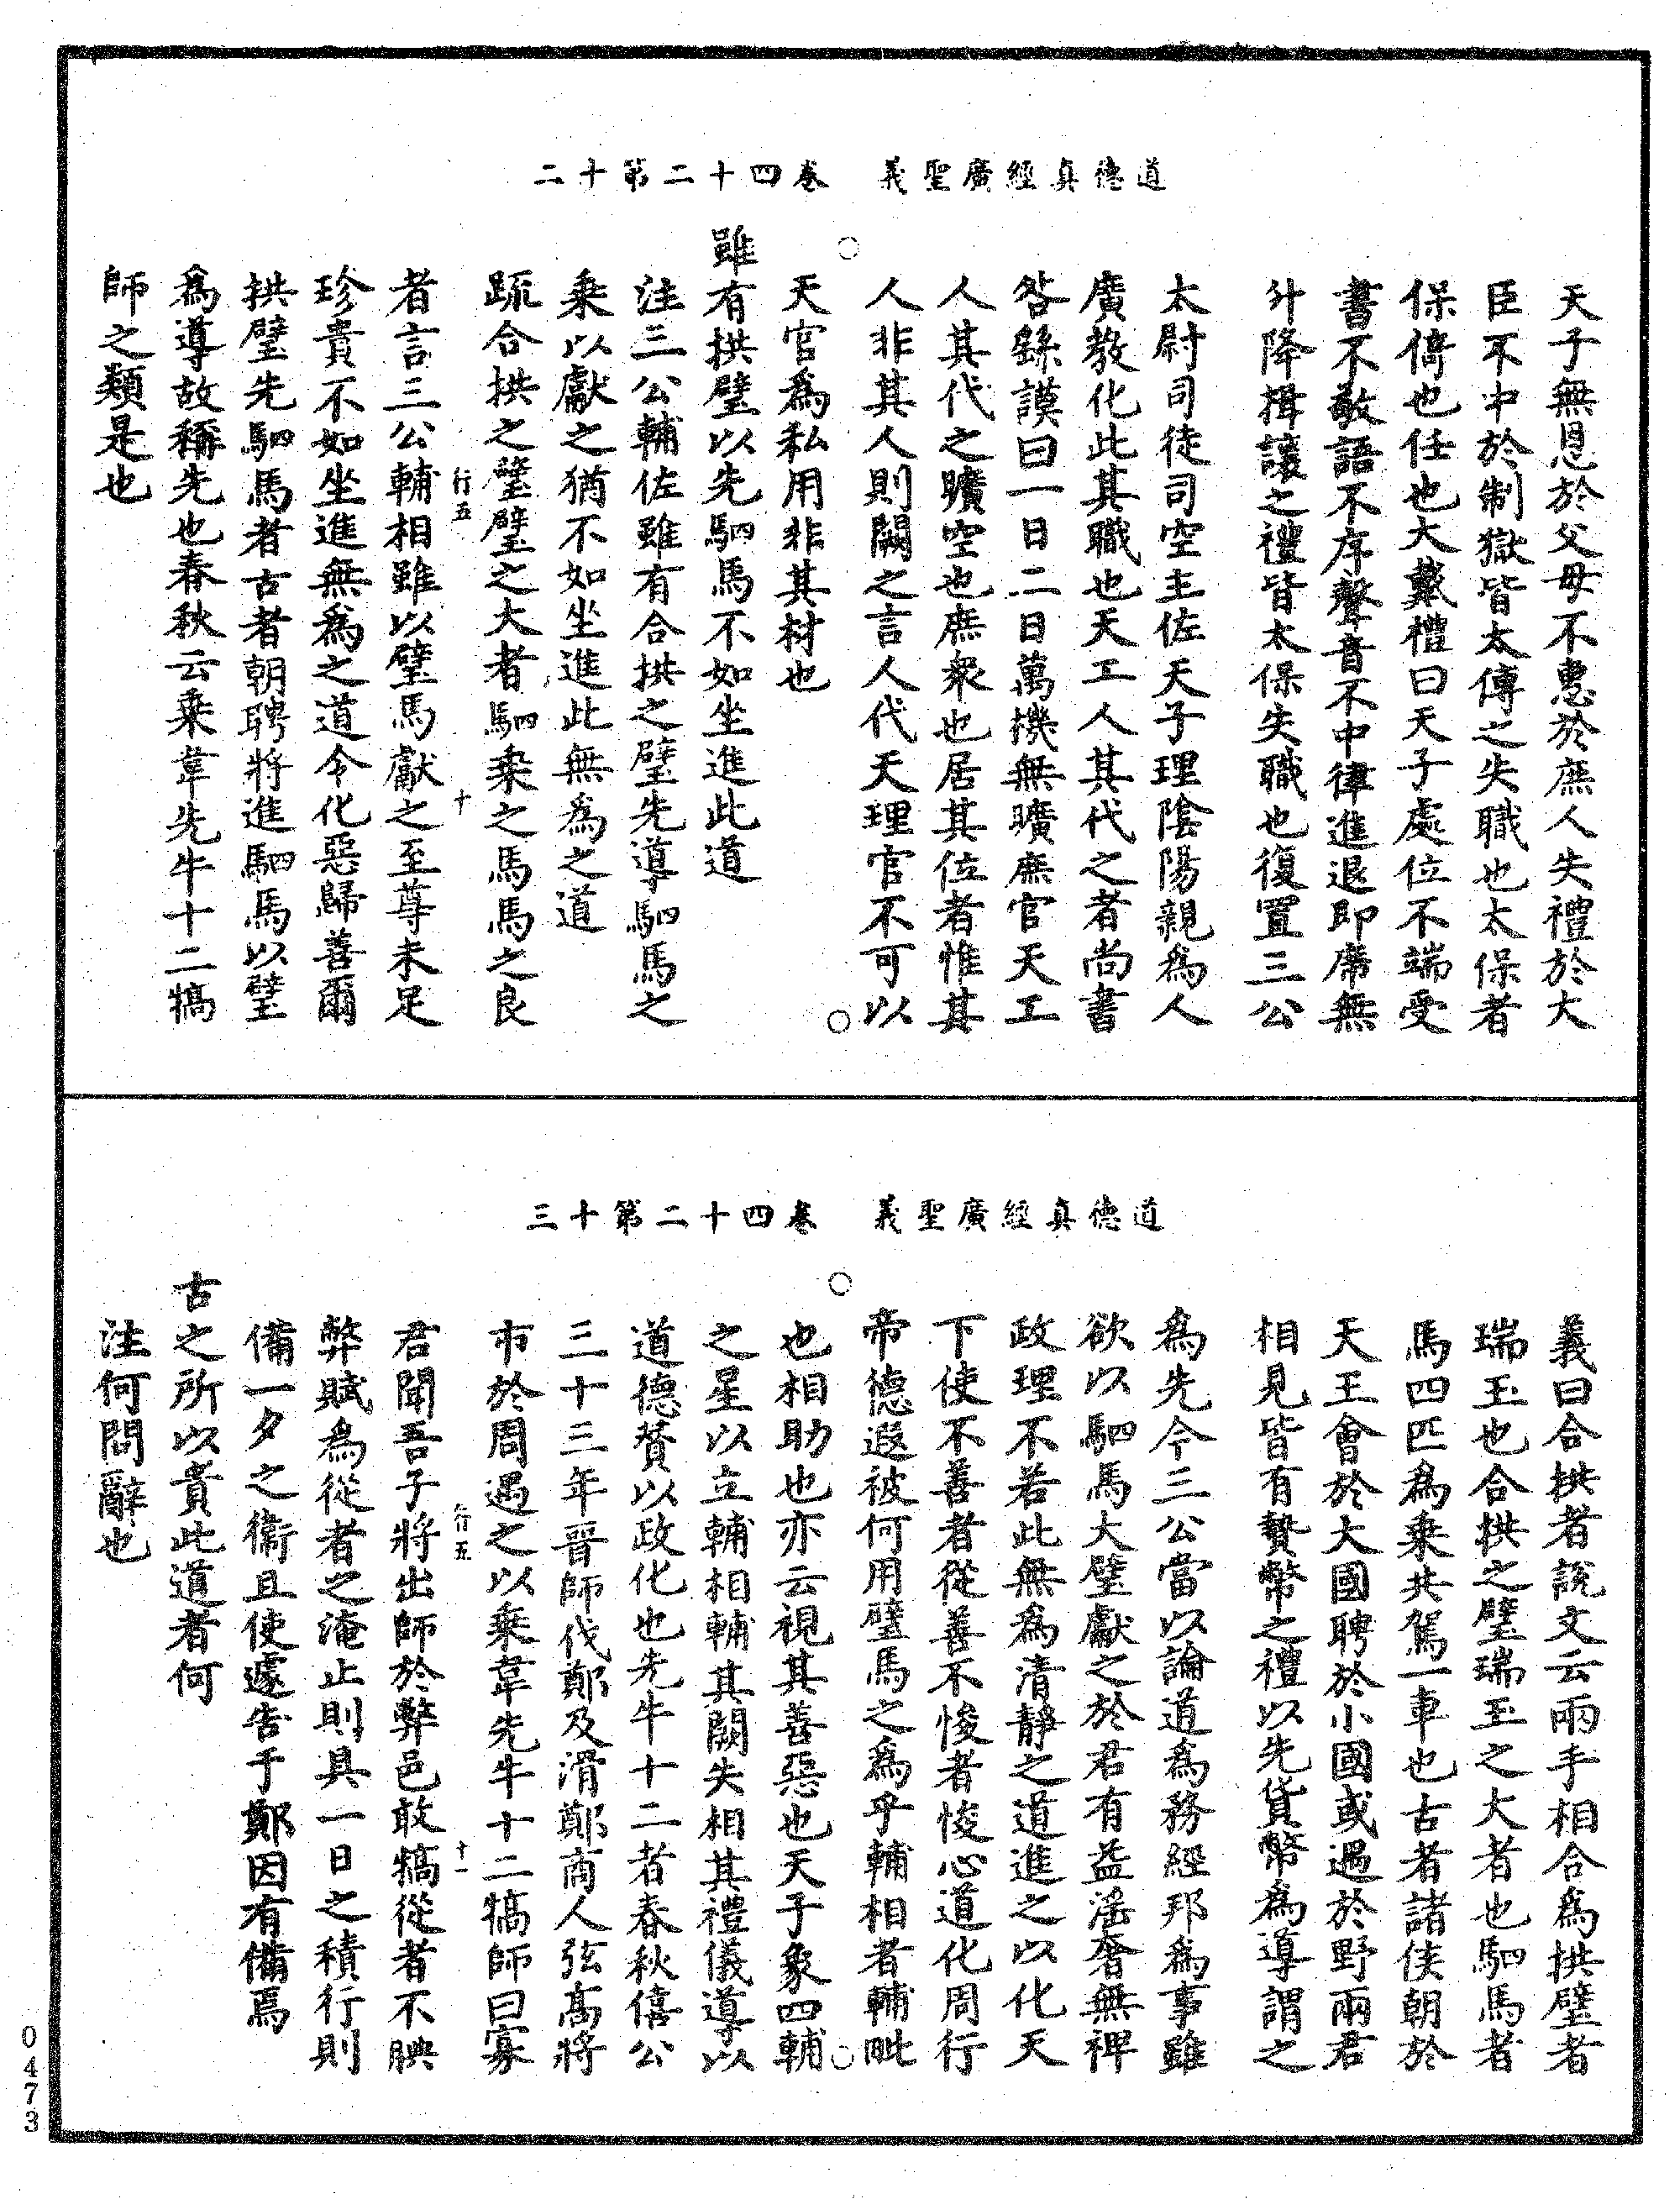 道德真經廣聖義　卷四十二第十二
天子無恩於父母不惠於庶人失禮於大
臣不中於制獄皆太傅之失職也太保者
保倚也任也大戴禮曰天子處位不端受
書不敬語不序聲音不中律進退即席無
升降揖讓之禮皆太保失職也復置三公
太尉司徒司空主佐天子理陰陽親為人
廣教化此其職也天工人其代之者尚書
咎繇謨曰一日二日萬機無曠庶官天工
人其代之曠空也庶衆也居其位者惟其
人非其人則闕之言人代天理官不可以
天官為私用非其材也
雖有拱璧以先駟馬不如坐進此道
注三公輔佐雖有合拱之璧先導駟馬之
乗以獻之猶不如坐進此無為之道
疏合拱之璧璧之大者駟乗之馬馬之良
行五　十
者言三公輔相雖以璧馬獻之至尊未足
珍貴不如坐進無為之道令化惡歸善爾
拱璧先駟馬者古者朝聘將進駟馬以璧
為導故稱先也春秋云乗韋先牛十二犒
師之類是也
道德真經廣聖義　卷四十二第十三
義曰合拱者説文云兩手相合為拱璧者
瑞玉也合拱之璧瑞玉之大者也駟馬者
馬四匹為乗共駕一車也古者諸侯朝於
天王會於大國聘於小國或遇於野兩君
相見皆有贄幣之禮以先貨幣為導謂之
為先今三公當以論道為務經邦為事雖
欲以駟馬大璧獻之於君有益滛奢無裨
政理不若此無為清靜之道進之以化天
下使不善者從善不悛者悛心道化周行
帝德遐被何用璧馬之為乎輔相者輔毗
也相助也亦云視其善惡也天子象四輔
之星以立輔相輔其闕失相其禮儀導以
道德賛以政化也先牛十二者春秋僖公
三十三年晉師伐鄭及滑鄭商人弦高將
市於周遇之以乗韋先牛十二犒師曰寡
行五　十一
君聞吾子將出師於弊邑敢犒從者不腆
弊賦為從者之淹止則具一日之積行則
備一夕之衞且使遽告于鄭因有備焉
古之所以貴此道者何
注何問辭也
0473